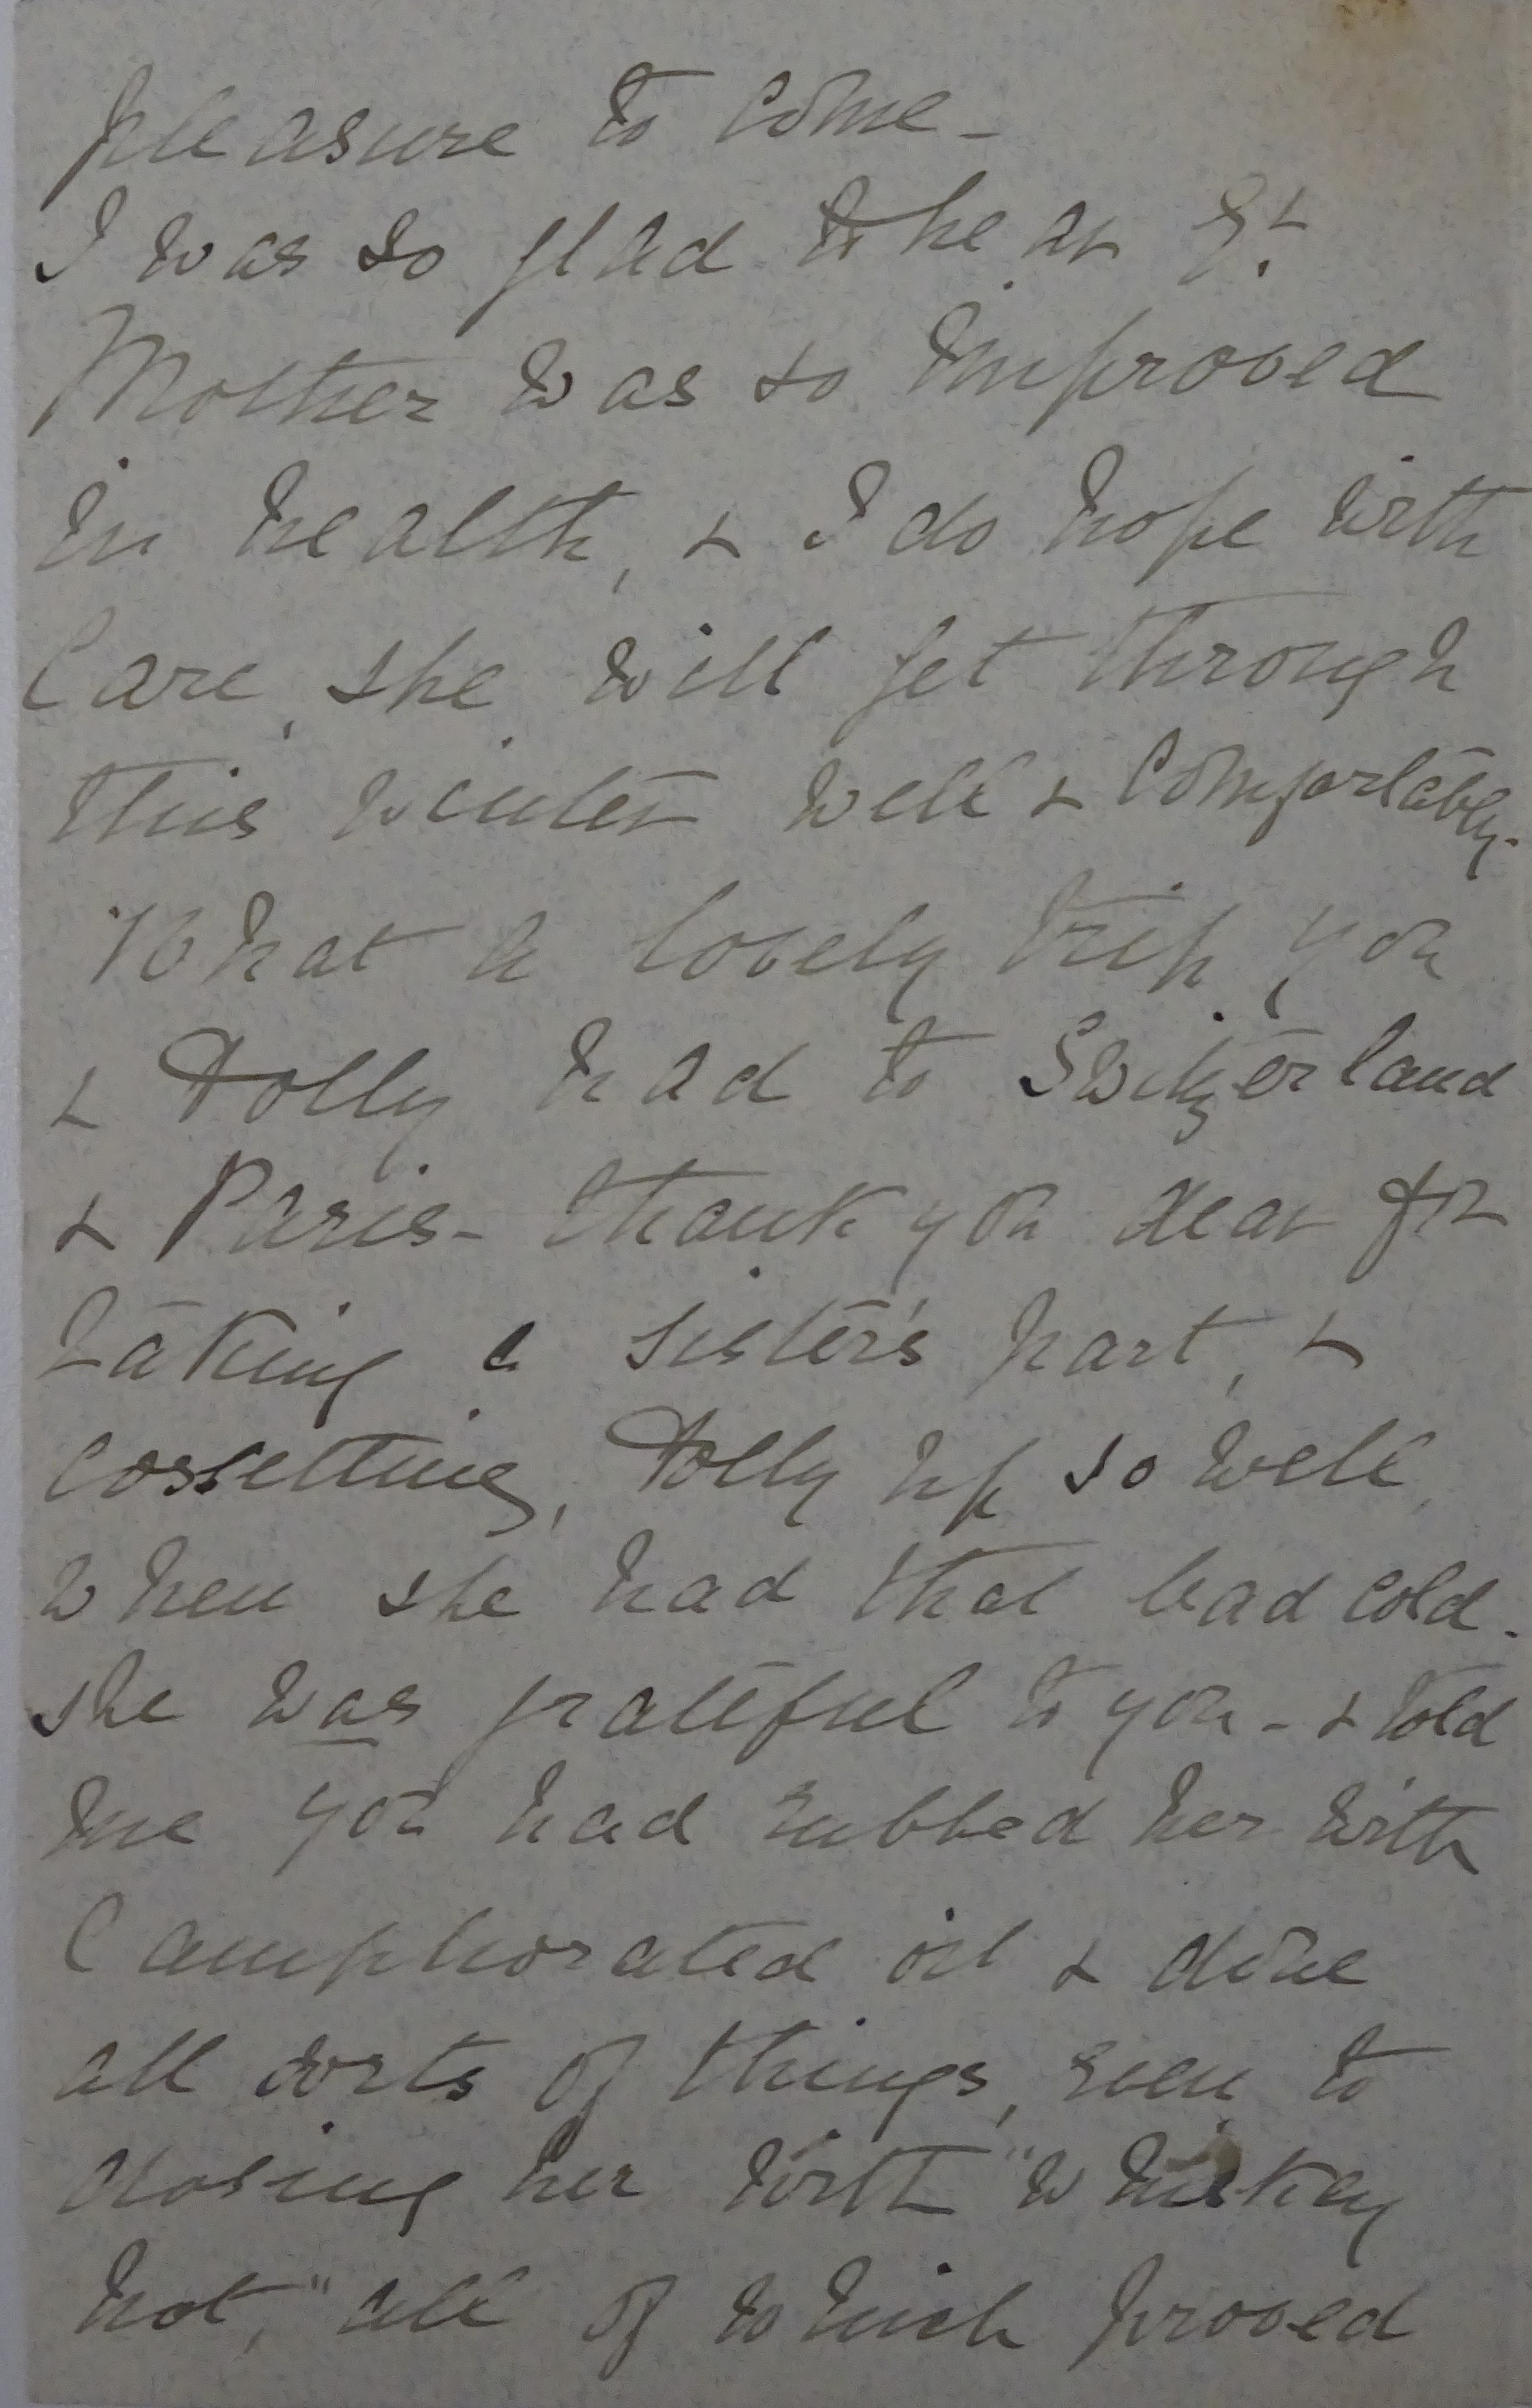 pleasure to come -
I was so glad to hear yr.
Mother was so improved
in health, & I do hope with
care, she will get through
this winter well & comfortably.
What a lovely trip you
& Dolly had to Switzerland
& Paris - thank you dear for
taking a sister's part, &
cossetting, Dolly up so well,
when she had that bad cold.
she was grateful to you - & told
me you had rubbed her with
Camphorated oil & done
all sorts of things, even to
dosing her with "whiskey
hot," all of which proved